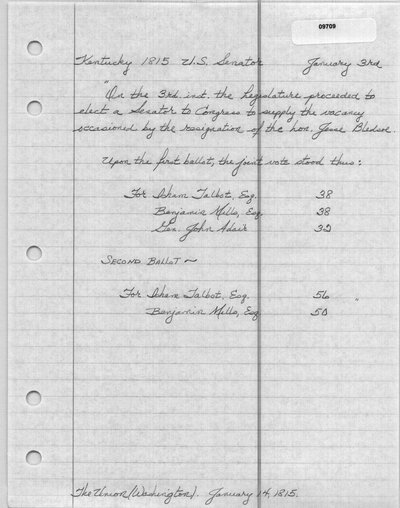 09709
Kentucky 1815 U.S. Senator January 3rd
"On the 3rd. inst. the Legislature proceeded to
elect a Senator to Congress to supply the vacancy
occasioned by the resignation of the hon. Jesse Bledsoe.
Upon the first ballot, the joint vote stood thus:
For Isham Talbot, Esq. 38
Benjamin Mills, Esq. 38
Gen. John Adair 32
SECOND BALLOT ~
For Isham Talbot, Esq. 56 "
Benjamin Mills, Esq. 50
The Union (Washington). January 14, 1815.